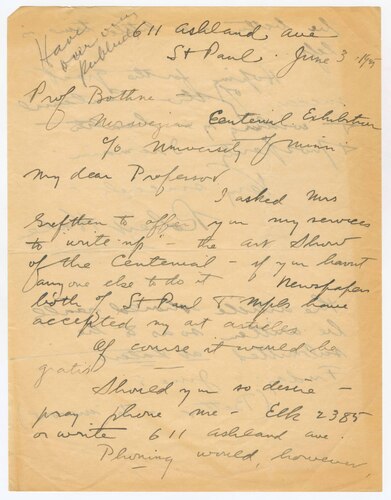 Have
over
611 Ashland Ave
St Paul. June 3
Prof Bothne
Norwegian Centenial Exhibition
c/o University of Minn
My dear Professor
I asked Mrs
to offer you my services
to "write up" - the Art Show
of the Centenial - if you havnt
anyone else to do it Newspapers
both of St Paul & Mpls have
accepted my art articles.
Of course it would be
gratis
Should you so desire -
pray phone me - Elk 2385
or write 611 Ashland Ave.
Phoning would, however